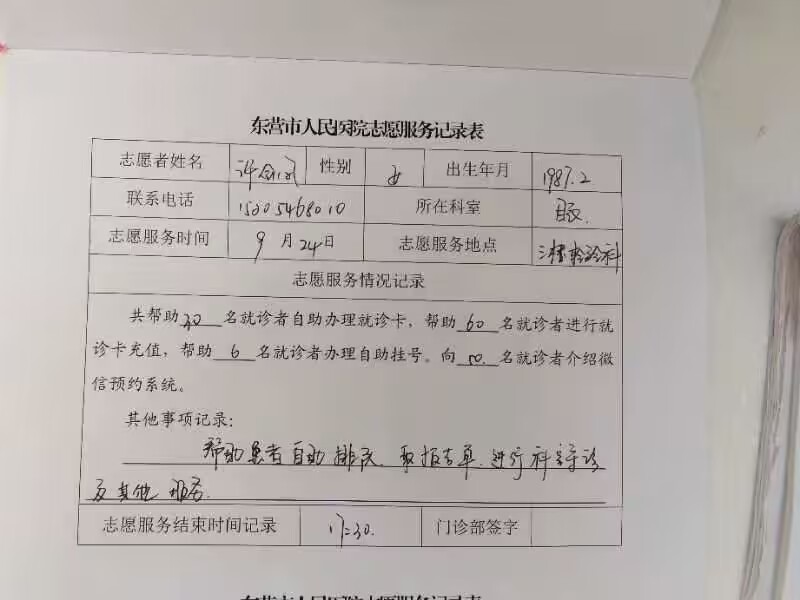 东营市人民医院志愿服务记录表
志愿者姓名 许 性别 女 出生年月 1987.2
联系电话 15205468010 所在科室
志愿服务时间 9月24日 志愿服务地点 科
志愿服务情况记录
共帮助30名就诊者自助办理就诊卡，帮助60名就诊者进行就
诊卡充值，帮助6名就诊者办理自助挂号。向50名就诊者介绍微
信预约系统。
其他事项记录：
帮助患者自助排队、取报告单、进行科室导诊
及其他服务.
志愿服务结束时间记录 17:30. 门诊部签字
东营市人民医院志愿服务记录表